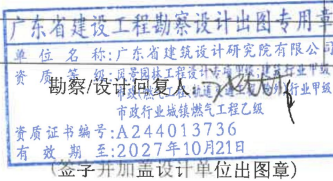 广东省建设工程勘察设计出图专用章
单位名称:广东省建筑设计研究院有限公司
资质等级:风景园林工程设计专项甲级;建筑行业甲级
勘察/设计回复人:
市政行业城镇燃气工程乙级
资质证书编号:A244013736
有效期至:2027年10月21日
(签字并加盖设计单位出图章)